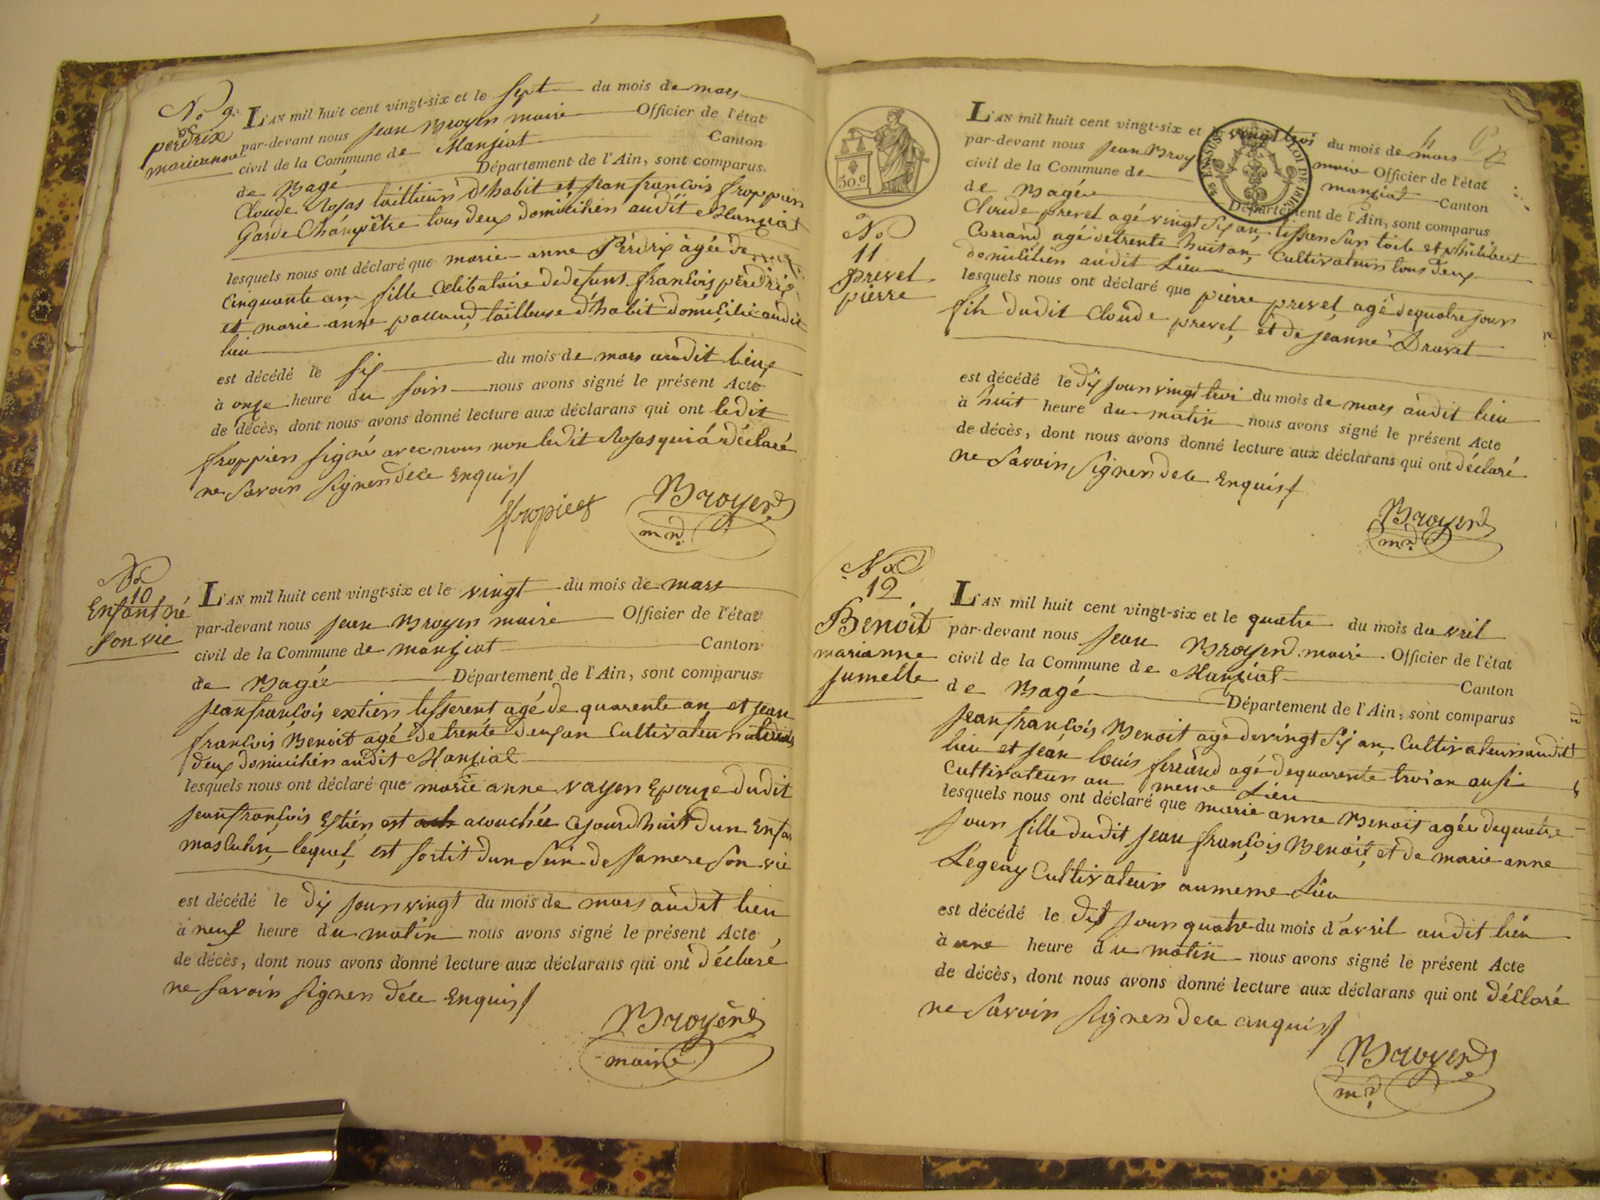 No 9.
perdrix
marieanne
L'AN mil huit cent vingt-six et le sept du mois de mars
par-devant nous jean Broyer maire Officier de l'état
civil de la Commune de Manziat Canton
de Bagé Département de l'Ain, sont comparus
Cloude Rojas taillieur d'habit et jean francois froppier
Garde Champêtre tous deux domicilien audit Manziat
lesquels nous ont déclaré que marie anne Perdrix agée de
Cinquante an fille Célibataire de defunt francois perdrix
et marie anne pacoud, tailleuse d'habit domicilié audit
lieu
est décédé le six du mois de mars audit lieu
à onze heure du soir nous avons signé le présent Acte
de décès, dont nous avons donné lecture aux déclarans qui ont ledit
froppier signé avec nous non ledit Rojas qui a déclaré
ne Savoir Signer de ce Enquis
Broyer
mre
No
10
Enfant né
Son vie
L'AN mil huit cent vingt-six et le vingt du mois de mars
par-devant nous jean Broyer maire Officier de l'état
civil de la Commune de manziat Canton
de Bagé Département de l'Ain, sont comparus
jean francois extier tisserent agé de quarente an et jean
francois Benoit agé de trente deux an Cultivateur tous
deux domicilien audit Manziat
lesquels nous ont déclaré que marie anne vayer Epouze dudit
jean francois Estier est acouchée ce jourdhuit dun Enfan
masculin, lequel est sortit dun Sein de Sa mere Son vie
est décédé le dix jour vingt du mois de mars audit lieu
à neuf heure du matin nous avons signé le présent Acte
de décès, dont nous avons donné lecture aux déclarans qui ont déclaré
ne savoir signer de ce Enquis
Broyer
maire
50.c
No
11
prevel
pierre
L'AN mil huit cent vingt-six et le vingt troi du mois de mars
par-devant nous jean Broy maire Officier de l'état
civil de la Commune de manziat Canton
de Bagé Département de l'Ain, sont comparus
Cloude prevel agé vingt Six an, tisser Sur toile et philibert
Corrand agé de trente huit an, Cultivateur tous deux
domicilien audit Lieu
lesquels nous ont déclaré que pierre prevel agé de quatre jour
fils dudit Cloude prevel, et de jeanne Druvat
est décédé le dix jour vingt troi du mois de mars audit lieu
à huit heure du matin nous avons signé le présent Acte
de décès, dont nous avons donné lecture aux déclarans qui ont déclaré
ne Savoir Signer de ce Enquis
Broyer
mre
No
12
Benoit
marianne
jumelle
L'AN mil huit cent vingt-six et le quatre du mois d'avril
par-devant nous jean Broyer maire Officier de l'état
civil de la Commune de Manziat Canton
de Bagé Département de l'Ain, sont comparus
jean françois Benoit agé de vingt Six an, Cultivateur audit
lieu et jean louis feraud agé de quarente troi an ausi
Cultivateur au meme Lieu
lesquels nous ont déclaré que marie anne Benoit agée de quatre
jour fille dudit jean françois Benoit, et de marie anne
Legeay Cultivateur au meme Lieu
est décédé le dit jour quatre du mois d'avril audit lieu
à une heure du matin nous avons signé le présent Acte
de décès, dont nous avons donné lecture aux déclarans qui ont déclaré
ne Savoir Signer de ce enquis
Broyer
mre